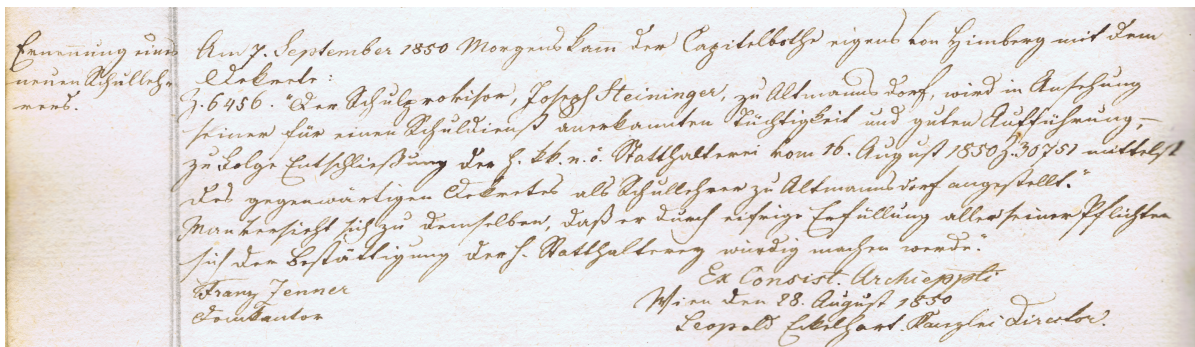 Ernennung eines
neuen Schulleh-
rers.
Am 7. September 1850 Morgens kam der Capitelbothe eigens von Himberg mit dem
Dekrete:
Z. 6456. "Der Schulprovisor, Joseph Steininger, zu Altmannsdorf, wird in Ansehung
seiner für einen Schuldienst anerkannten Tüchtigkeit und guten Aufführung,–
zu Folge Entschließung der h. kk. n. ö. Statthalterei vom 16. August 1850 Z. 30751 mittelst
des gegenwärtigen Dekretes als Schullehrer zu Altmannsdorf angestellt."
Man versieht sich zu demselben, daß er durch eifrige Erfüllung aller seiner Pflichten
sich der Bestättigung der h. Statthalterey würdig machen werde."
Ex Consist. Archieppli
Franz Zenner
Wien den 28. August 1850
Domkantor
Leopold Eckelhart. Kanzlei Director.